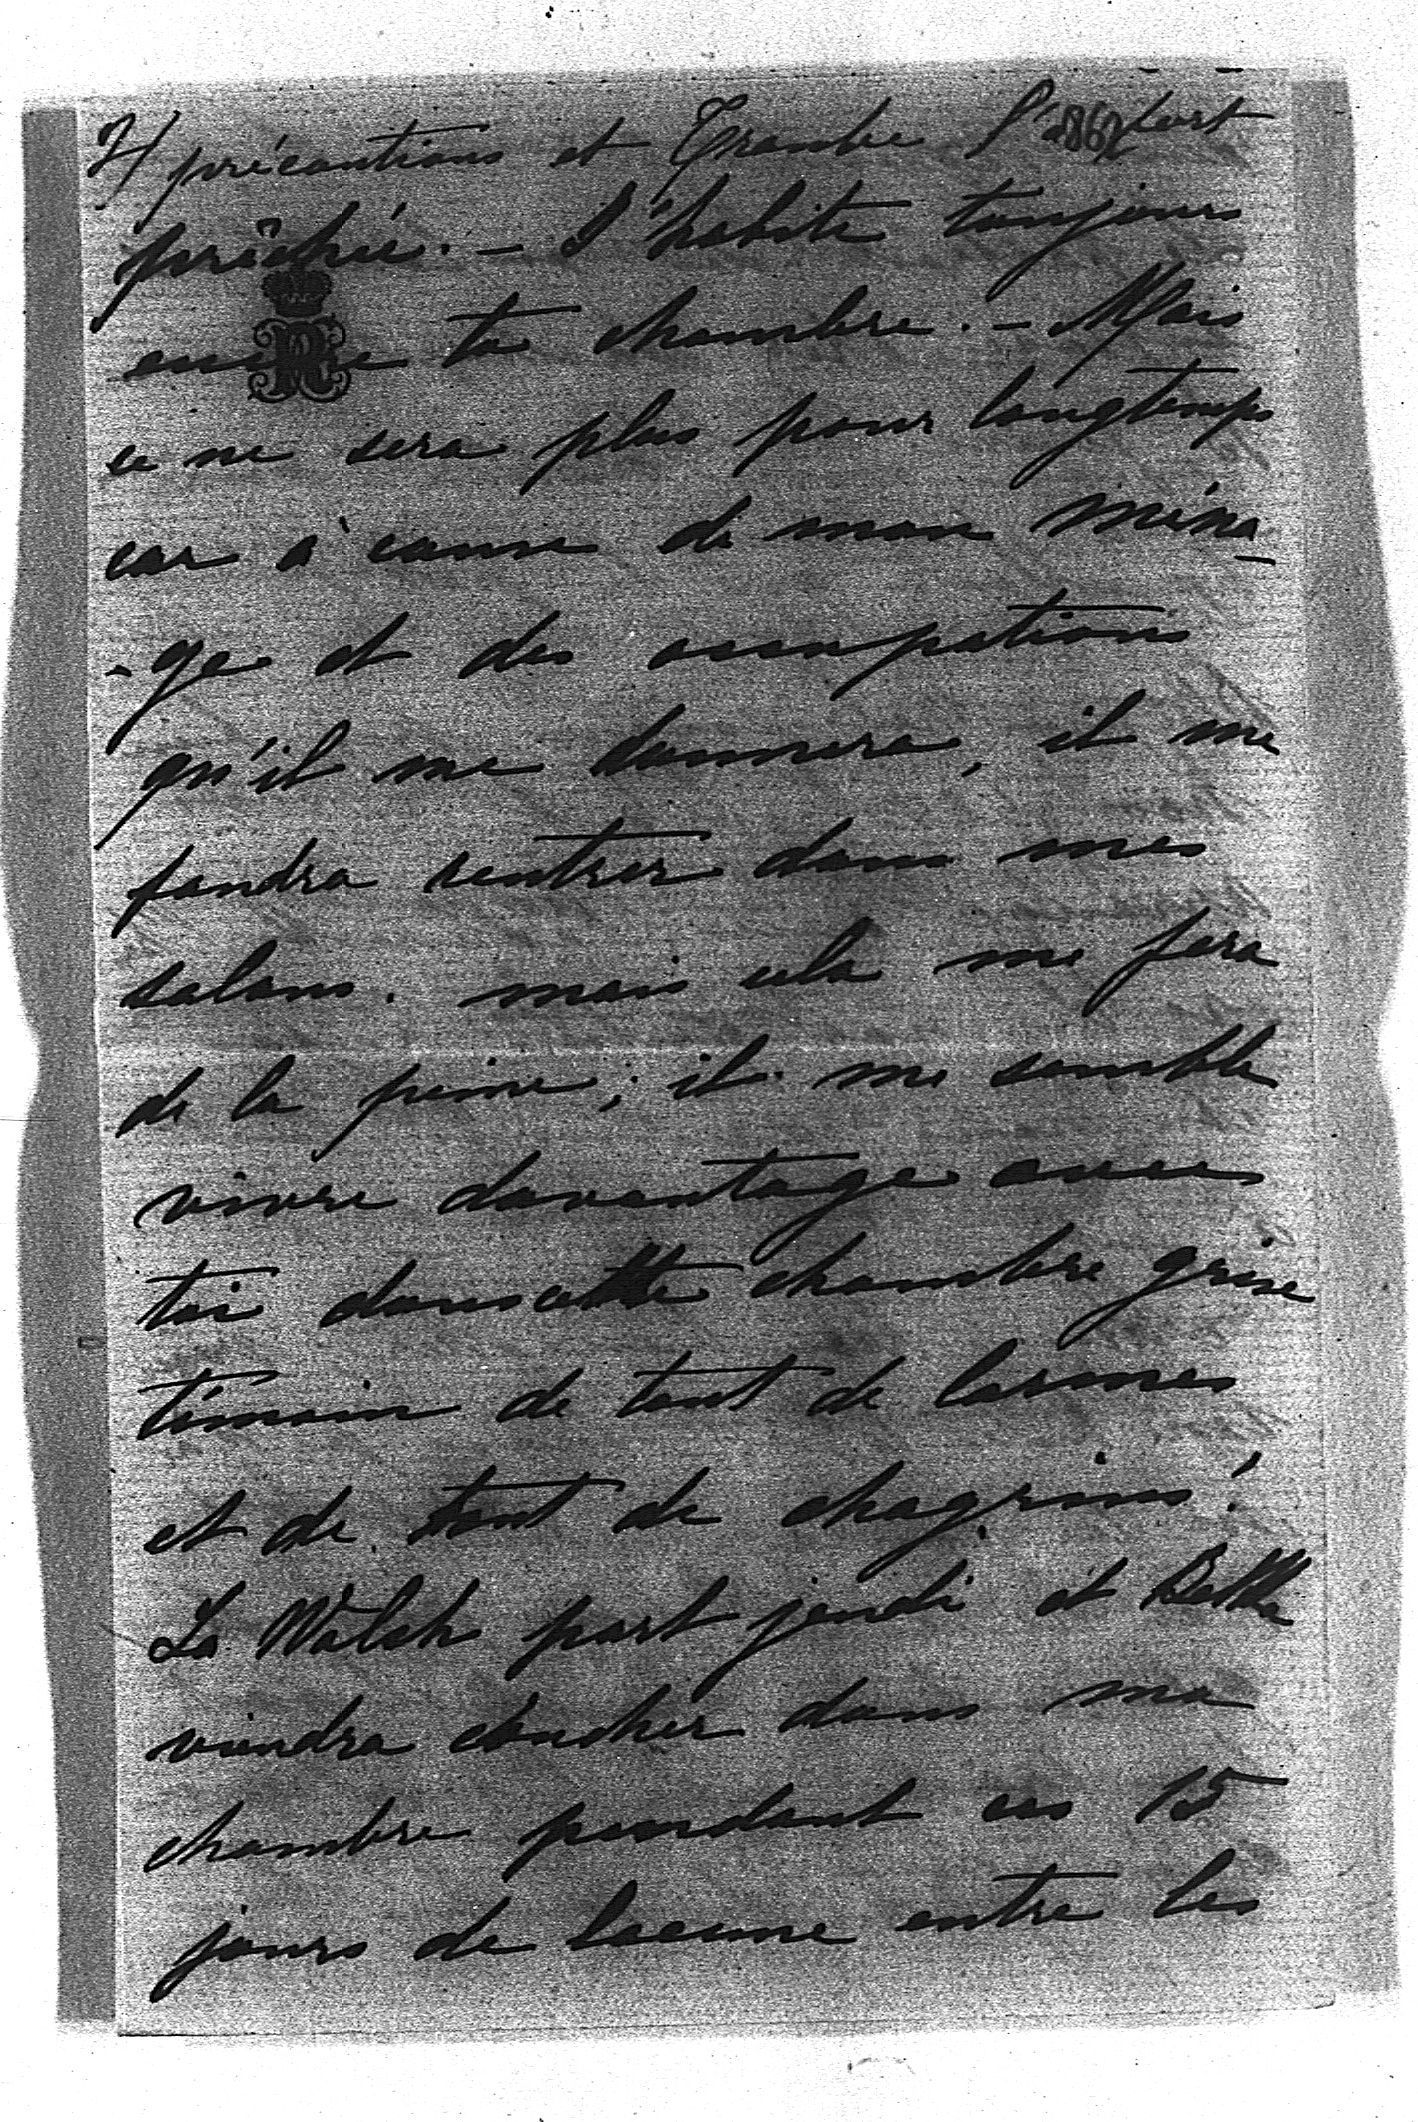 2/ précautions et Trombe l'a fort
prêchée. – J'habite toujours
encore ta chambre. – Mais
ce ne sera plus pour longtemps
car à cause de mon ména-
-ge et des occupations
qu'il me donnera, il me
faudra rentrer dans mes
salons. mais cela me fera
de la peine; il me semble
vivre davantage avec
toi dans cette chambre grise
témoin de tant de larmes
et de tant de chagrins!
La Walsh part jeudi et Bertha
viendra coucher dans ma
chambre pendant ces 15
jours de lacune entre les